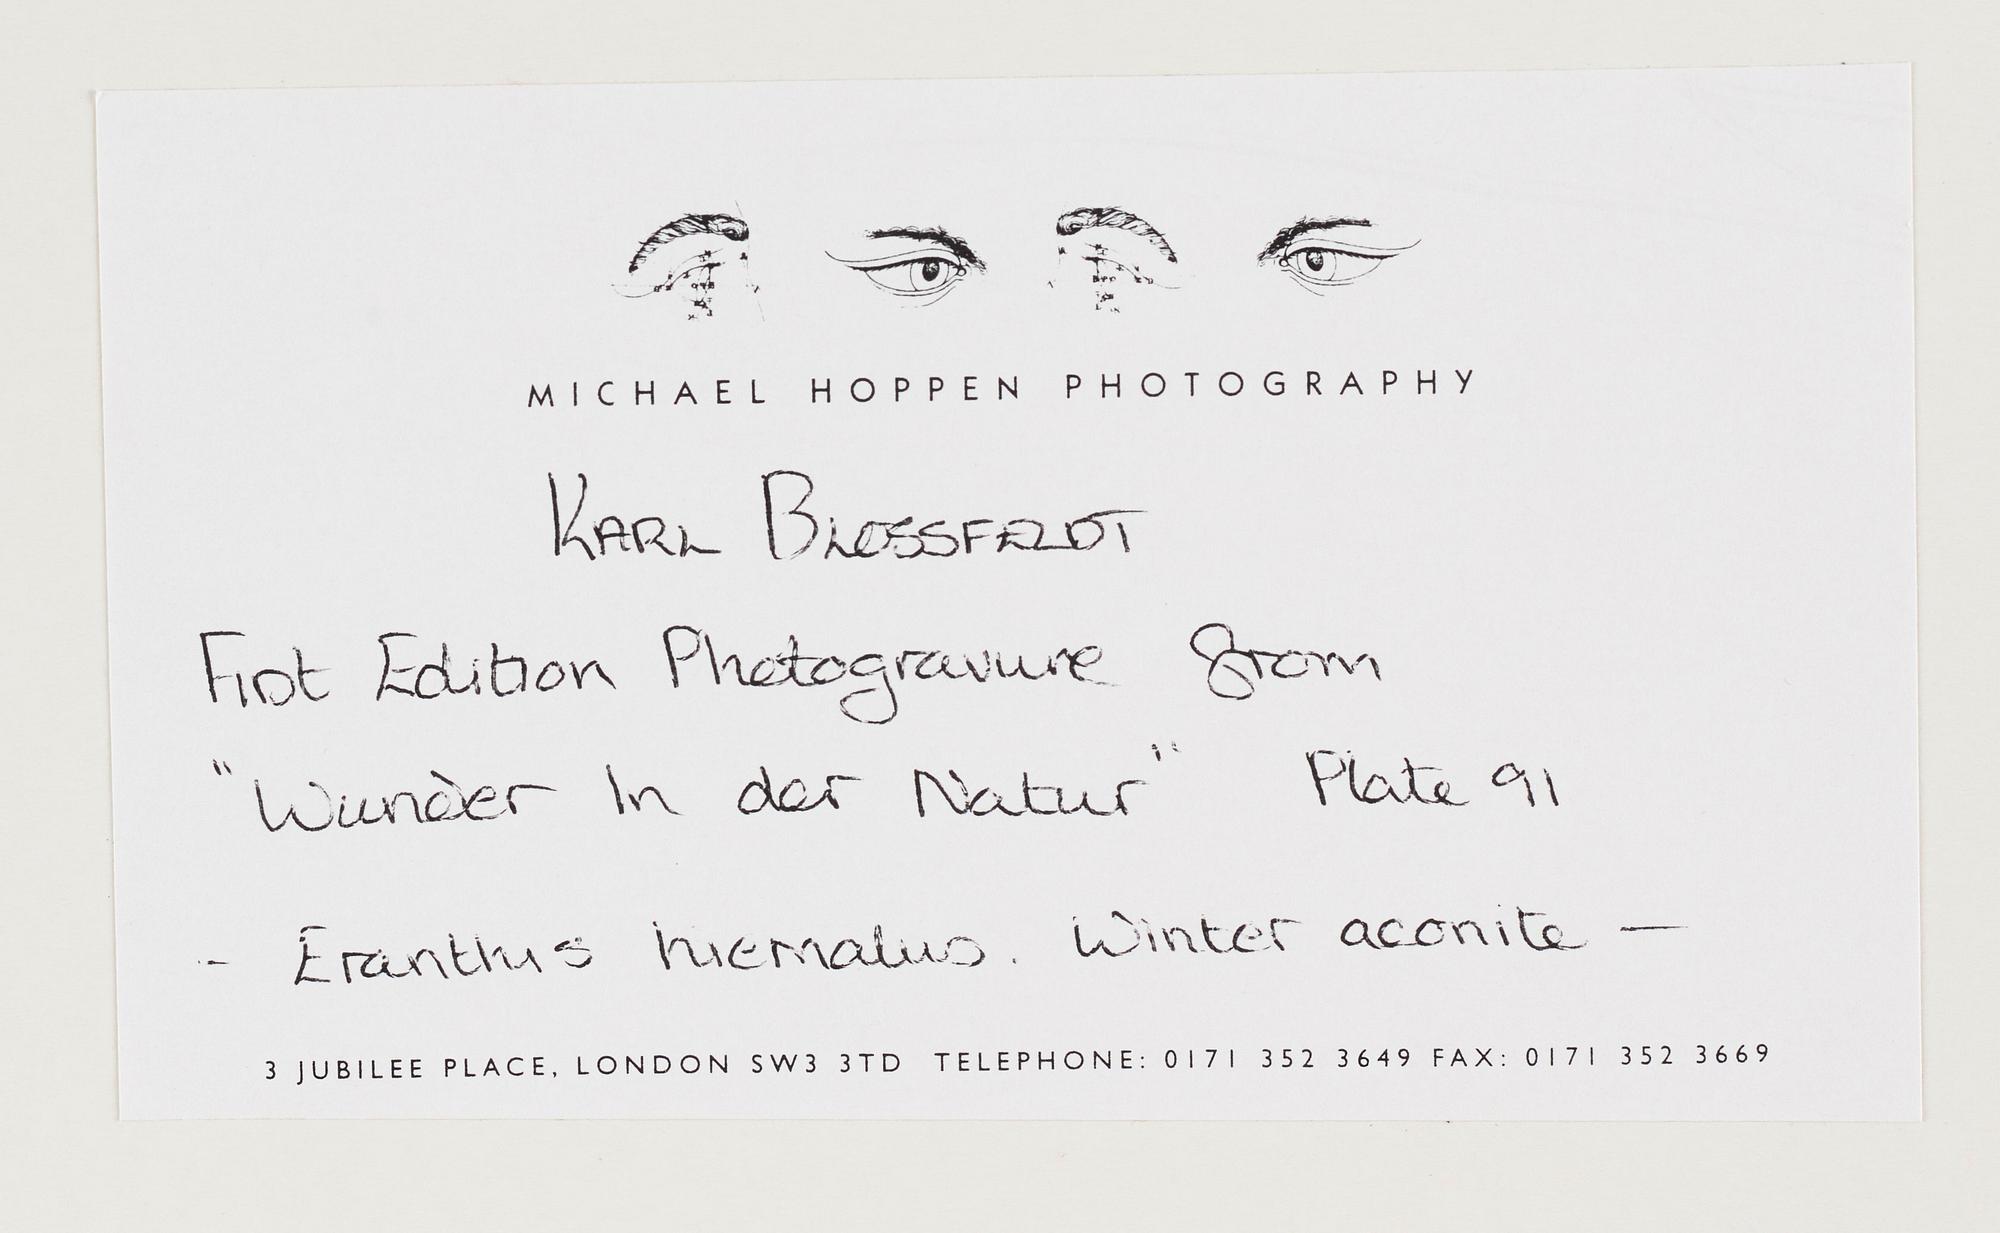 MICHAEL HOPPEN PHOTOGRAPHY
KARL BLOSSFELDT
First Edition Photogravure from
"Wunder In der Natur" Plate 91
- Eranthis hiemalus. Winter aconite —
3 JUBILEE PLACE, LONDON SW3 3TD TELEPHONE: 0171 352 3649 FAX: 0171 352 3669